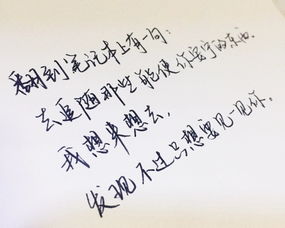 翻到笔记本上有句：
去追随那些能使你安宁的东西
我想来想去，
发现不过只想要见一见你。